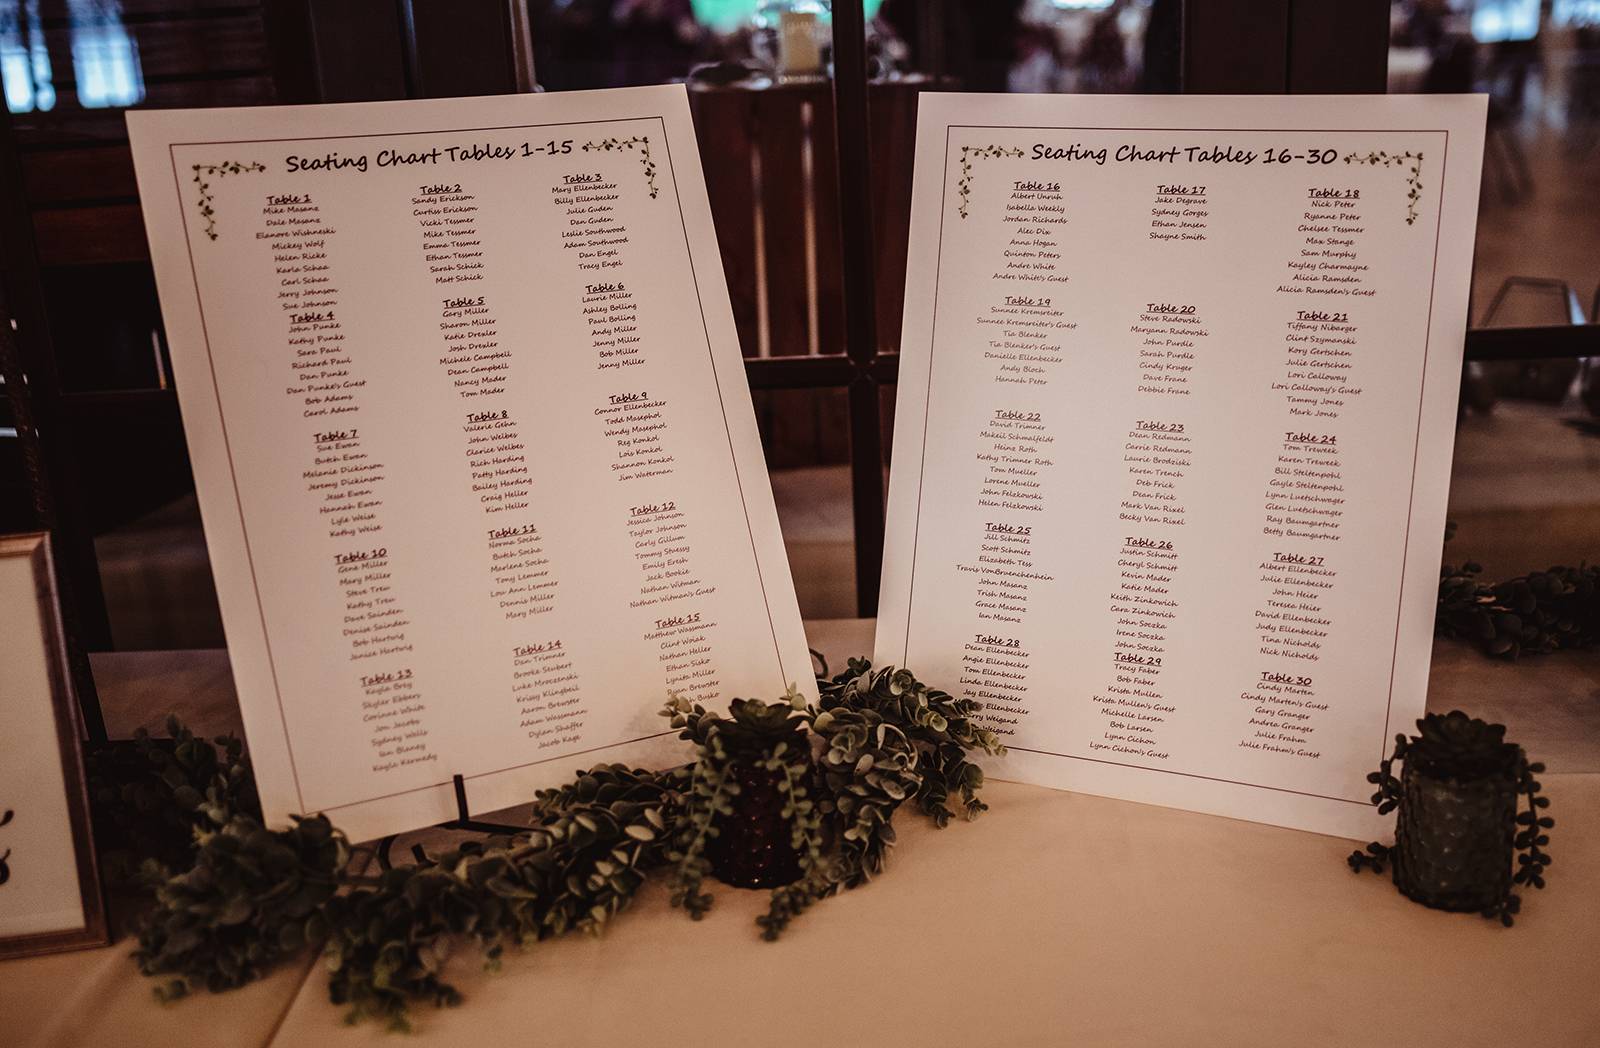 Seating Chart Tables 1-15
Table 1
Mike Masanz
Dale Masanz
Elanore Wishneski
Mickey Wolf
Helen Ricke
Karla Schaa
Carl Schaa
Jerry Johnson
Sue Johnson
Table 2
Sandy Erickson
Curtiss Erickson
Vicki Tessmer
Mike Tessmer
Emma Tessmer
Ethan Tessmer
Sarah Schick
Matt Schick
Table 3
Mary Ellenbecker
Billy Ellenbecker
Julie Guden
Dan Guden
Leslie Southwood
Adam Southwood
Dan Engel
Tracy Engel
Table 4
John Punke
Kathy Punke
Sara Paul
Richard Paul
Dan Punke
Dan Punke's Guest
Bob Adams
Carol Adams
Table 5
Gary Miller
Sharon Miller
Katie Drexler
Josh Drexler
Michele Campbell
Dean Campbell
Nancy Mader
Tom Mader
Table 6
Laurie Miller
Ashley Bolling
Paul Bolling
Andy Miller
Jenny Miller
Bob Miller
Jenny Miller
Table 7
Sue Ewan
Butch Ewan
Melanie Dickinson
Jeremy Dickinson
Jesse Ewan
Hannah Ewan
Lyle Weise
Kathy Weise
Table 8
Valerie Gehn
John Welbes
Clarice Welbes
Rich Harding
Patty Harding
Bailey Harding
Craig Heller
Kim Heller
Table 9
Connor Ellenbecker
Todd Masephol
Wendy Masephol
Reg Konkol
Lois Konkol
Shannon Konkol
Jim Waterman
Table 10
Gene Miller
Mary Miller
Steve Treu
Kathy Treu
Dave Sainden
Denise Sainden
Bob Hartwig
Janice Hartwig
Table 11
Norma Socha
Butch Socha
Marlene Socha
Tony Lemmer
Lou Ann Lemmer
Dennis Miller
Mary Miller
Table 12
Jessica Johnson
Taylor Johnson
Carly Gillum
Tommy Stuessy
Emily Eresh
Jack Bookie
Nathan Witman
Nathan Witman's Guest
Table 13
Kayla Brey
Skyler Ebbers
Corinne White
Jon Jacobs
Sydney Wells
Ian Blaney
Kayla Kennedy
Table 14
Dan Trimner
Brooke Seubert
Luke Mroczenski
Krissy Klingbeil
Aaron Brewster
Adam Wassmann
Dylan Shaffer
Jacob Kage
Table 15
Matthew Wassmann
Clint Woiak
Nathan Heller
Ethan Sisko
Lynita Miller
Ryan Brewster
Busko
Seating Chart Tables 16-30
Table 16
Albert Unruh
Isabella Weekly
Jordan Richards
Alec Dix
Anna Hogan
Quinton Peters
Andre White
Andre White's Guest
Table 17
Jake Degrave
Sydney Gorges
Ethan Jensen
Shayne Smith
Table 18
Nick Peter
Ryanne Peter
Chelsee Tessmer
Max Stange
Sam Murphy
Kayley Charmayne
Alicia Ramsden
Alicia Ramsden's Guest
Table 19
Sunnee Kremsreiter
Sunnee Kremsreiter's Guest
Tia Blenker
Tia Blenker's Guest
Danielle Ellenbecker
Andy Bloch
Hannah Peter
Table 20
Steve Radowski
Maryann Radowski
John Purdle
Sarah Purdle
Cindy Kruger
Dave Frane
Debbie Frane
Table 21
Tiffany Nibarger
Clint Szymanski
Kory Gertschen
Julie Gertschen
Lori Calloway
Lori Calloway's Guest
Tammy Jones
Mark Jones
Table 22
David Trimner
Makeil Schmalfeldt
Heinz Roth
Kathy Trimner Roth
Tom Mueller
Lorene Mueller
John Felzkowski
Helen Felzkowski
Table 23
Dean Redmann
Carrie Redmann
Laurie Brodziski
Karen Trench
Deb Frick
Dean Frick
Mark Van Rixel
Becky Van Rixel
Table 24
Tom Treweek
Karen Treweek
Bill Steltenpohl
Gayle Steltenpohl
Lynn Luetschwager
Glen Luetschwager
Ray Baumgartner
Betty Baumgartner
Table 25
Jill Schmitz
Scott Schmitz
Elizabeth Tess
Travis VonBruenchenhein
John Masanz
Trish Masanz
Grace Masanz
Ian Masanz
Table 26
Justin Schmitt
Cheryl Schmitt
Kevin Mader
Katie Mader
Keith Zinkowich
Cara Zinkowich
John Soczka
Irene Soczka
John Soczka
Table 27
Albert Ellenbecker
Julie Ellenbecker
John Heier
Teresa Heier
David Ellenbecker
Judy Ellenbecker
Tina Nicholds
Nick Nicholds
Table 28
Dean Ellenbecker
Angie Ellenbecker
Tom Ellenbecker
Linda Ellenbecker
Jay Ellenbecker
Ellenbecker
Weigand
Weigand
Table 29
Tracy Faber
Bob Faber
Krista Mullen
Krista Mullen's Guest
Michelle Larsen
Bob Larsen
Lynn Cichon
Lynn Cichon's Guest
Table 30
Cindy Marten
Cindy Marten's Guest
Gary Granger
Andrea Granger
Julie Frahm
Julie Frahm's Guest